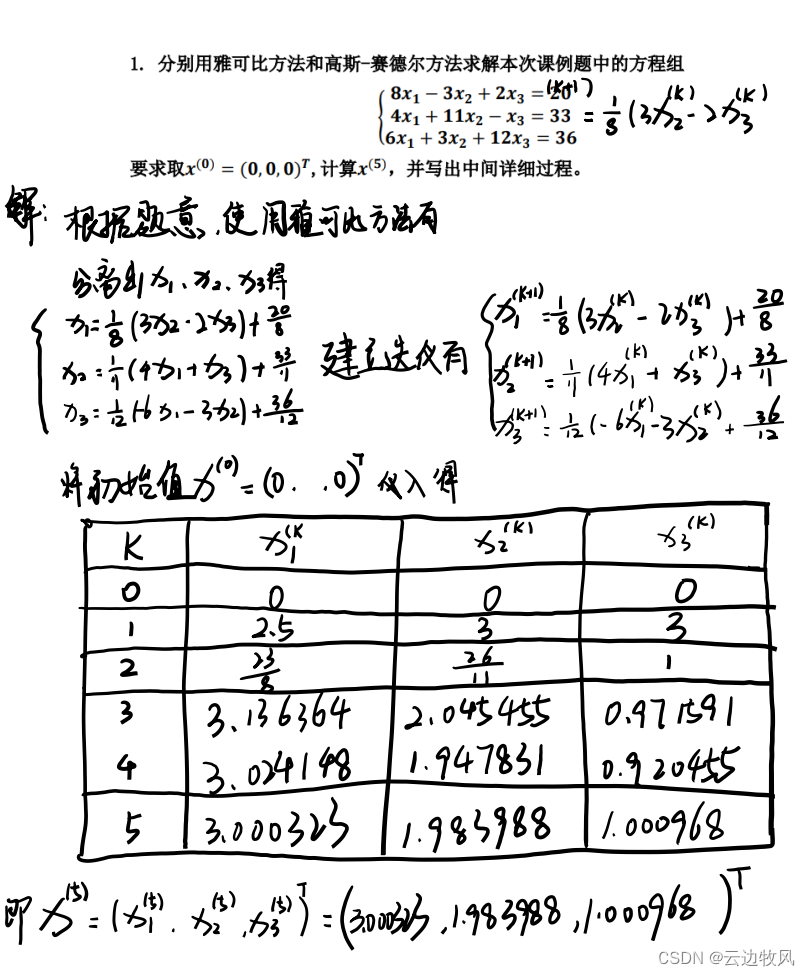 1. 分别用雅可比方法和高斯-赛德尔方法求解本次课例题中的方程组
8x₁ − 3x₂ + 2x₃ = 20 (k+1) = 1/8 (3x₂^(K) - 2x₃^(K)
4x₁ + 11x₂ − x₃ = 33
6x₁ + 3x₂ + 12x₃ = 36
要求取x^(0) = (0, 0, 0)^T, 计算x^(5)，并写出中间详细过程。
解: 根据题意, 使用雅可比方法有
分离出 x₁、x₂、x₃得
x₁ = 1/8 (3x₂ - 2x₃) + 20/8
x₂ = 1/11 (4x₁ + x₃) + 33/11
x₃ = 1/12 (-6x₁ - 3x₂) + 36/12
建立迭代有
x₁^(K+1) = 1/8 (3x₂^(K) - 2x₃^(K)) + 20/8
x₂^(K+1) = 1/11 (4x₁^(K) + x₃^(K)) + 33/11
x₃^(K+1) = 1/12 (-6x₁^(K) - 3x₂^(K) + 36/12
将初始值 x^(0) = (0. .0)^T 代入得
K x₁^(K x₂^(K) x₃^(K)
0 0 0 0
1 2.5 3 3
2 23/8 26/11 1
3 3.136364 2.045455 0.971591
4 3.024148 1.947831 0.920455
5 3.000323 1.983988 1.000968
即 x^(5) = (x₁^(5), x₂^(5), x₃^(5))^T = (3.000323, 1.983988, 1.000968)^T
CSDN @云边牧风